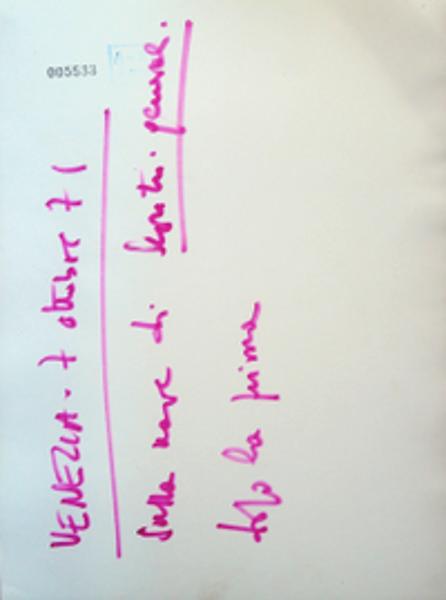 005533
VENEZIA - 7 ottobre 71
Sulla nave di generale.
dopo la prima